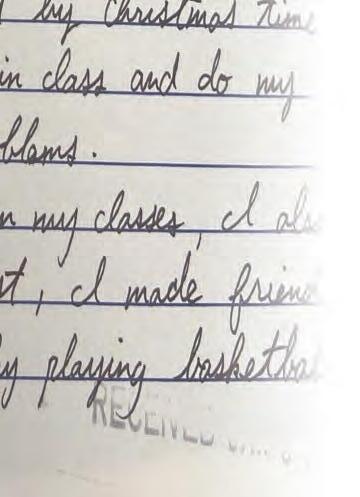 by Christmas time
in class and do my
blems.
n my classes, I als
st, I made friend
y playing basketbal
RECEIVED